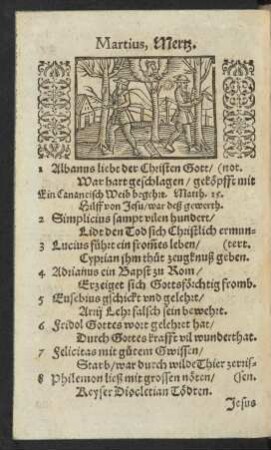 Martius, Mertz.
1 Albanus liebt der Christen Gott/ (not.
War hart geschlagen / geköpfft mit
Ein Cananeisch Weib begehrt. Matth. 15.
Hülff von Jesu/ war deß gewerth.
2 Simplicius sampt vilen hundert/
Lidt den Tod sich Christlich ermun-
3 Lucius führt ein from̃es leben/ (tert.
Cyprian jhm thůt zeugknuß geben.
4 Adrianus ein Bapst zu Rom/
Erzeiget sich Gottsförchtig fromb.
5 Eusebius gschickt vnd gelehrt/
Arij Lehr falsch sein bewehrt.
6 Fridol Gottes wort gelehrt hat/
Durch Gottes krafft vil wunderthat.
7 Felicitas mit gůtem Gwissen/
Starb/ war durch wilde Thier zerris-
8 Philemon ließ mit grossen nöten/ (sen.
Keyser Diocletian Tödten.
Jesus